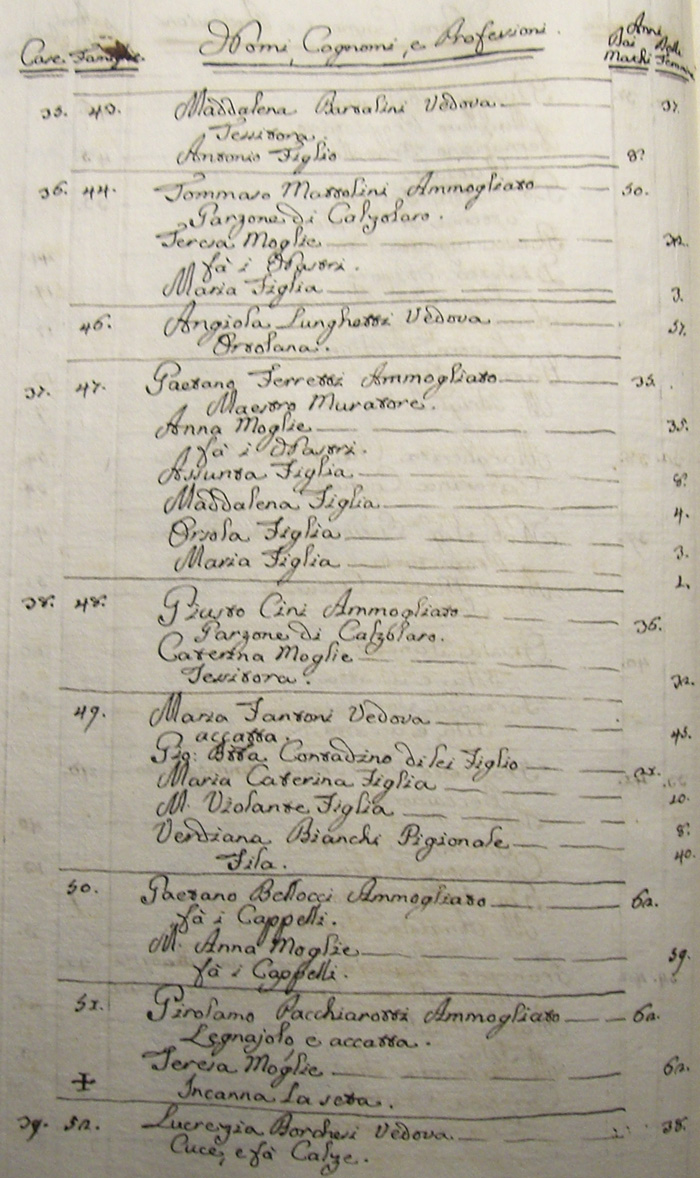 Case. Famiglie. Nomi, Cognomi, e Professioni. Anni Dei Maschi Delle Femmine
35. 43. Maddalena Bartalini Vedova 37.
Tessitora.
Antonio Figlio 8?
36. 44. Tommaso Mattolini Ammogliato 50.
Garzone di Calzolaro.
Teresa Moglie 32.
fà i Nastri.
Maria Figlia 3.
46. Angiola Lunghetti Vedova 57.
Ortolana.
37. 47. Gaetano Ferretti Ammogliato 35.
Maestro Muratore.
Anna Moglie 35.
fà i Nastri.
Assunta Figlia 8?
Maddalena Figlia 4.
Orsola Figlia 3.
Maria Figlia 1.
38. 48. Giusto Cini Ammogliato 36.
Garzone di Calzolaro.
Caterina Moglie 32.
Tessitora.
49. Maria Fantoni Vedova 45.
accatta.
Gio: Btta. Contadino di lei Figlio 21.
Maria Caterina Figlia 10.
M. Violante Figlia 8.
Verdiana Bianchi Pigionale 40.
Fila.
50. Gaetano Bellocci Ammogliato 62.
fà i Cappelli.
M. Anna Moglie 59.
fà i Cappelli.
51. Girolamo Pacchiarotti Ammogliato 62.
Legnajolo e accatta.
Teresa Moglie 62.
Incanna La seta.
39. 52. Lucrezia Borghesi Vedova 38.
Cuce, e fà Calze.